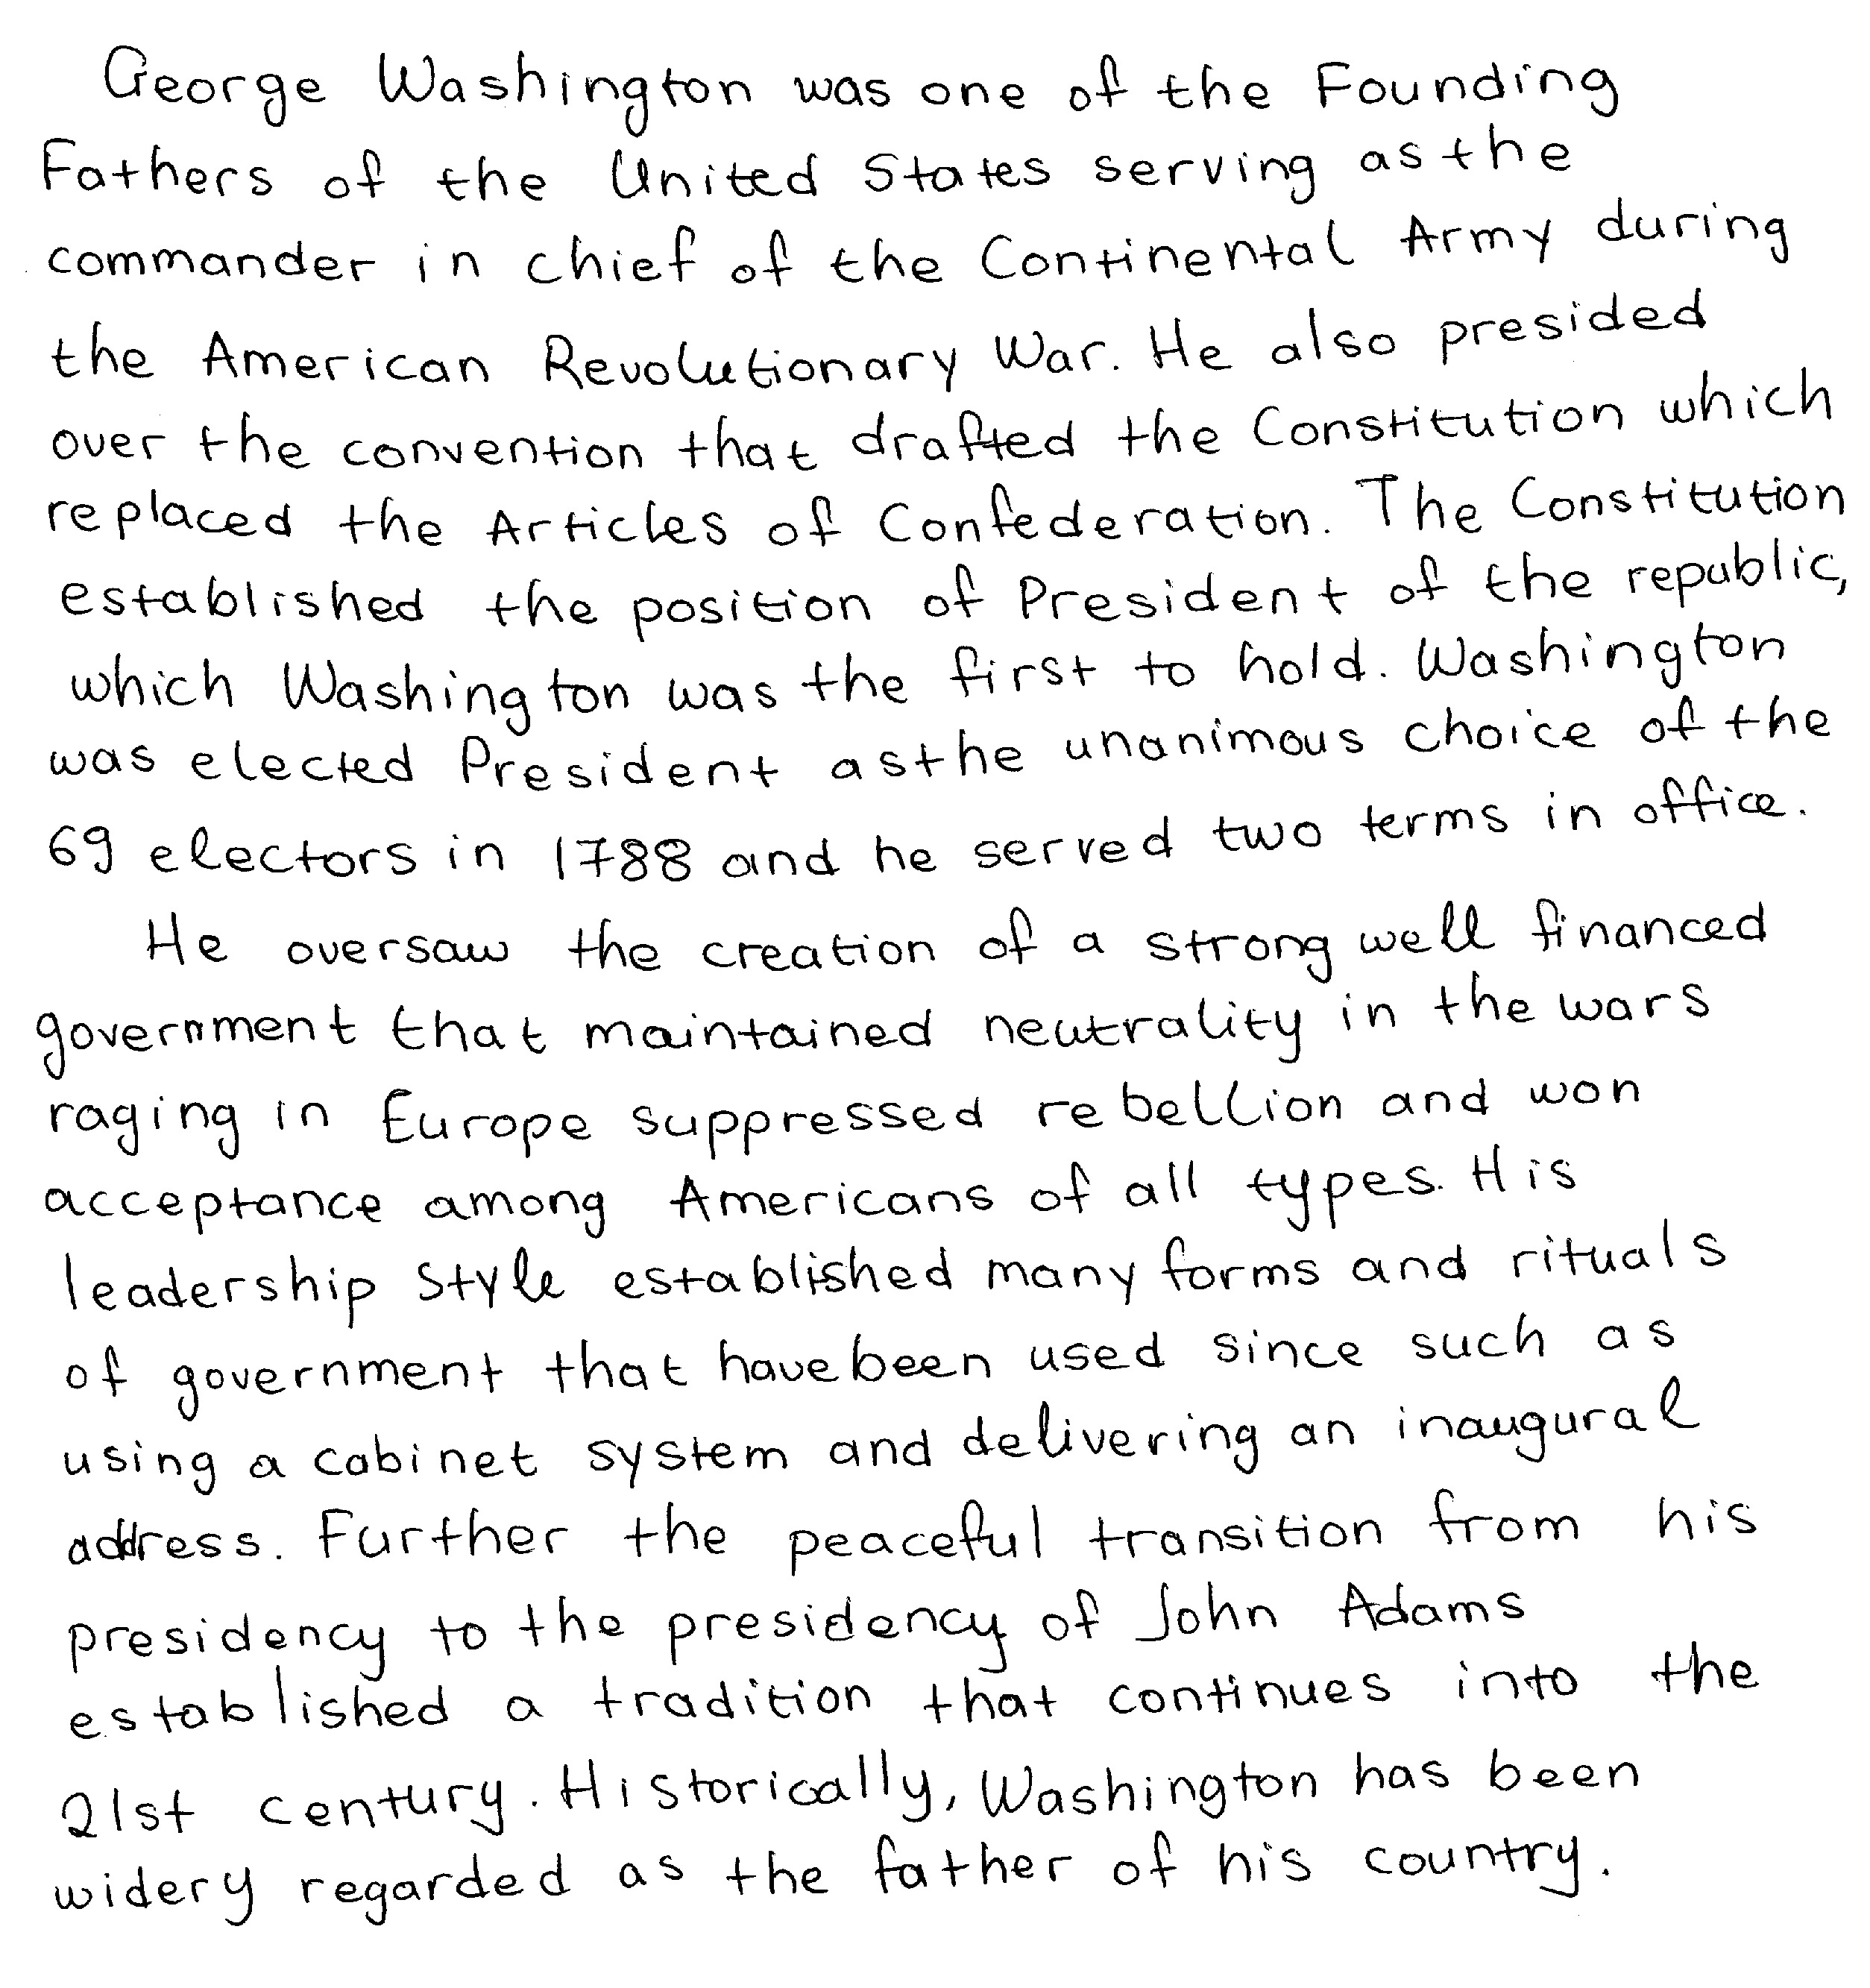 George Washington was one of the Founding
Fathers of the United States serving as the
commander in chief of the Continental Army during
the American Revolutionary War. He also presided
over the convention that drafted the Constitution which
replaced the Articles of Confederation. The Constitution
established the position of President of the republic,
which Washington was the first to hold. Washington
was elected President as the unanimous choice of the
69 electors in 1788 and he served two terms in office.
He oversaw the creation of a strong well financed
government that maintained neutrality in the wars
raging in Europe suppressed rebellion and won
acceptance among Americans of all types. His
leadership style established many forms and rituals
of government that have been used since such as
using a cabinet system and delivering an inaugural
address. Further the peaceful transition from his
presidency to the presidency of John Adams
established a tradition that continues into the
21st century. Historically, Washington has been
widery regarded as the father of his country.